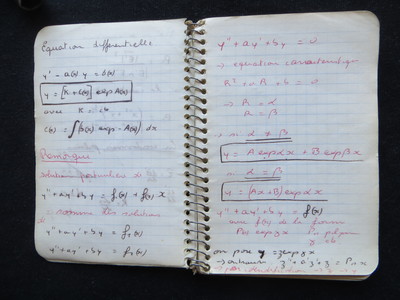 Equation différentielle
y' - a(x) y = b(x)
y = [K + C(x)] exp A(x)
avec K = cte
C(x) = ∫ b(x) exp - A(x) dx
Remarque
solution particulière
y'' + ay' + by = f₁(x) + f₂(x)
comme les solutions
y'' + ay' + by = f₁(x)
y'' + ay' + by = f₂(x)
y'' + ay' + by = 0
→ equation caractéristique
R² + aR + b = 0
→ R = α
R = β
si α ≠ β
y = A exp αx + B exp βx
si α = β
y = (Ax + B) exp αx
y'' + ay' + by = f(x)
avec f(x) de la forme
P(x) exp γx
on pose y = z exp γx